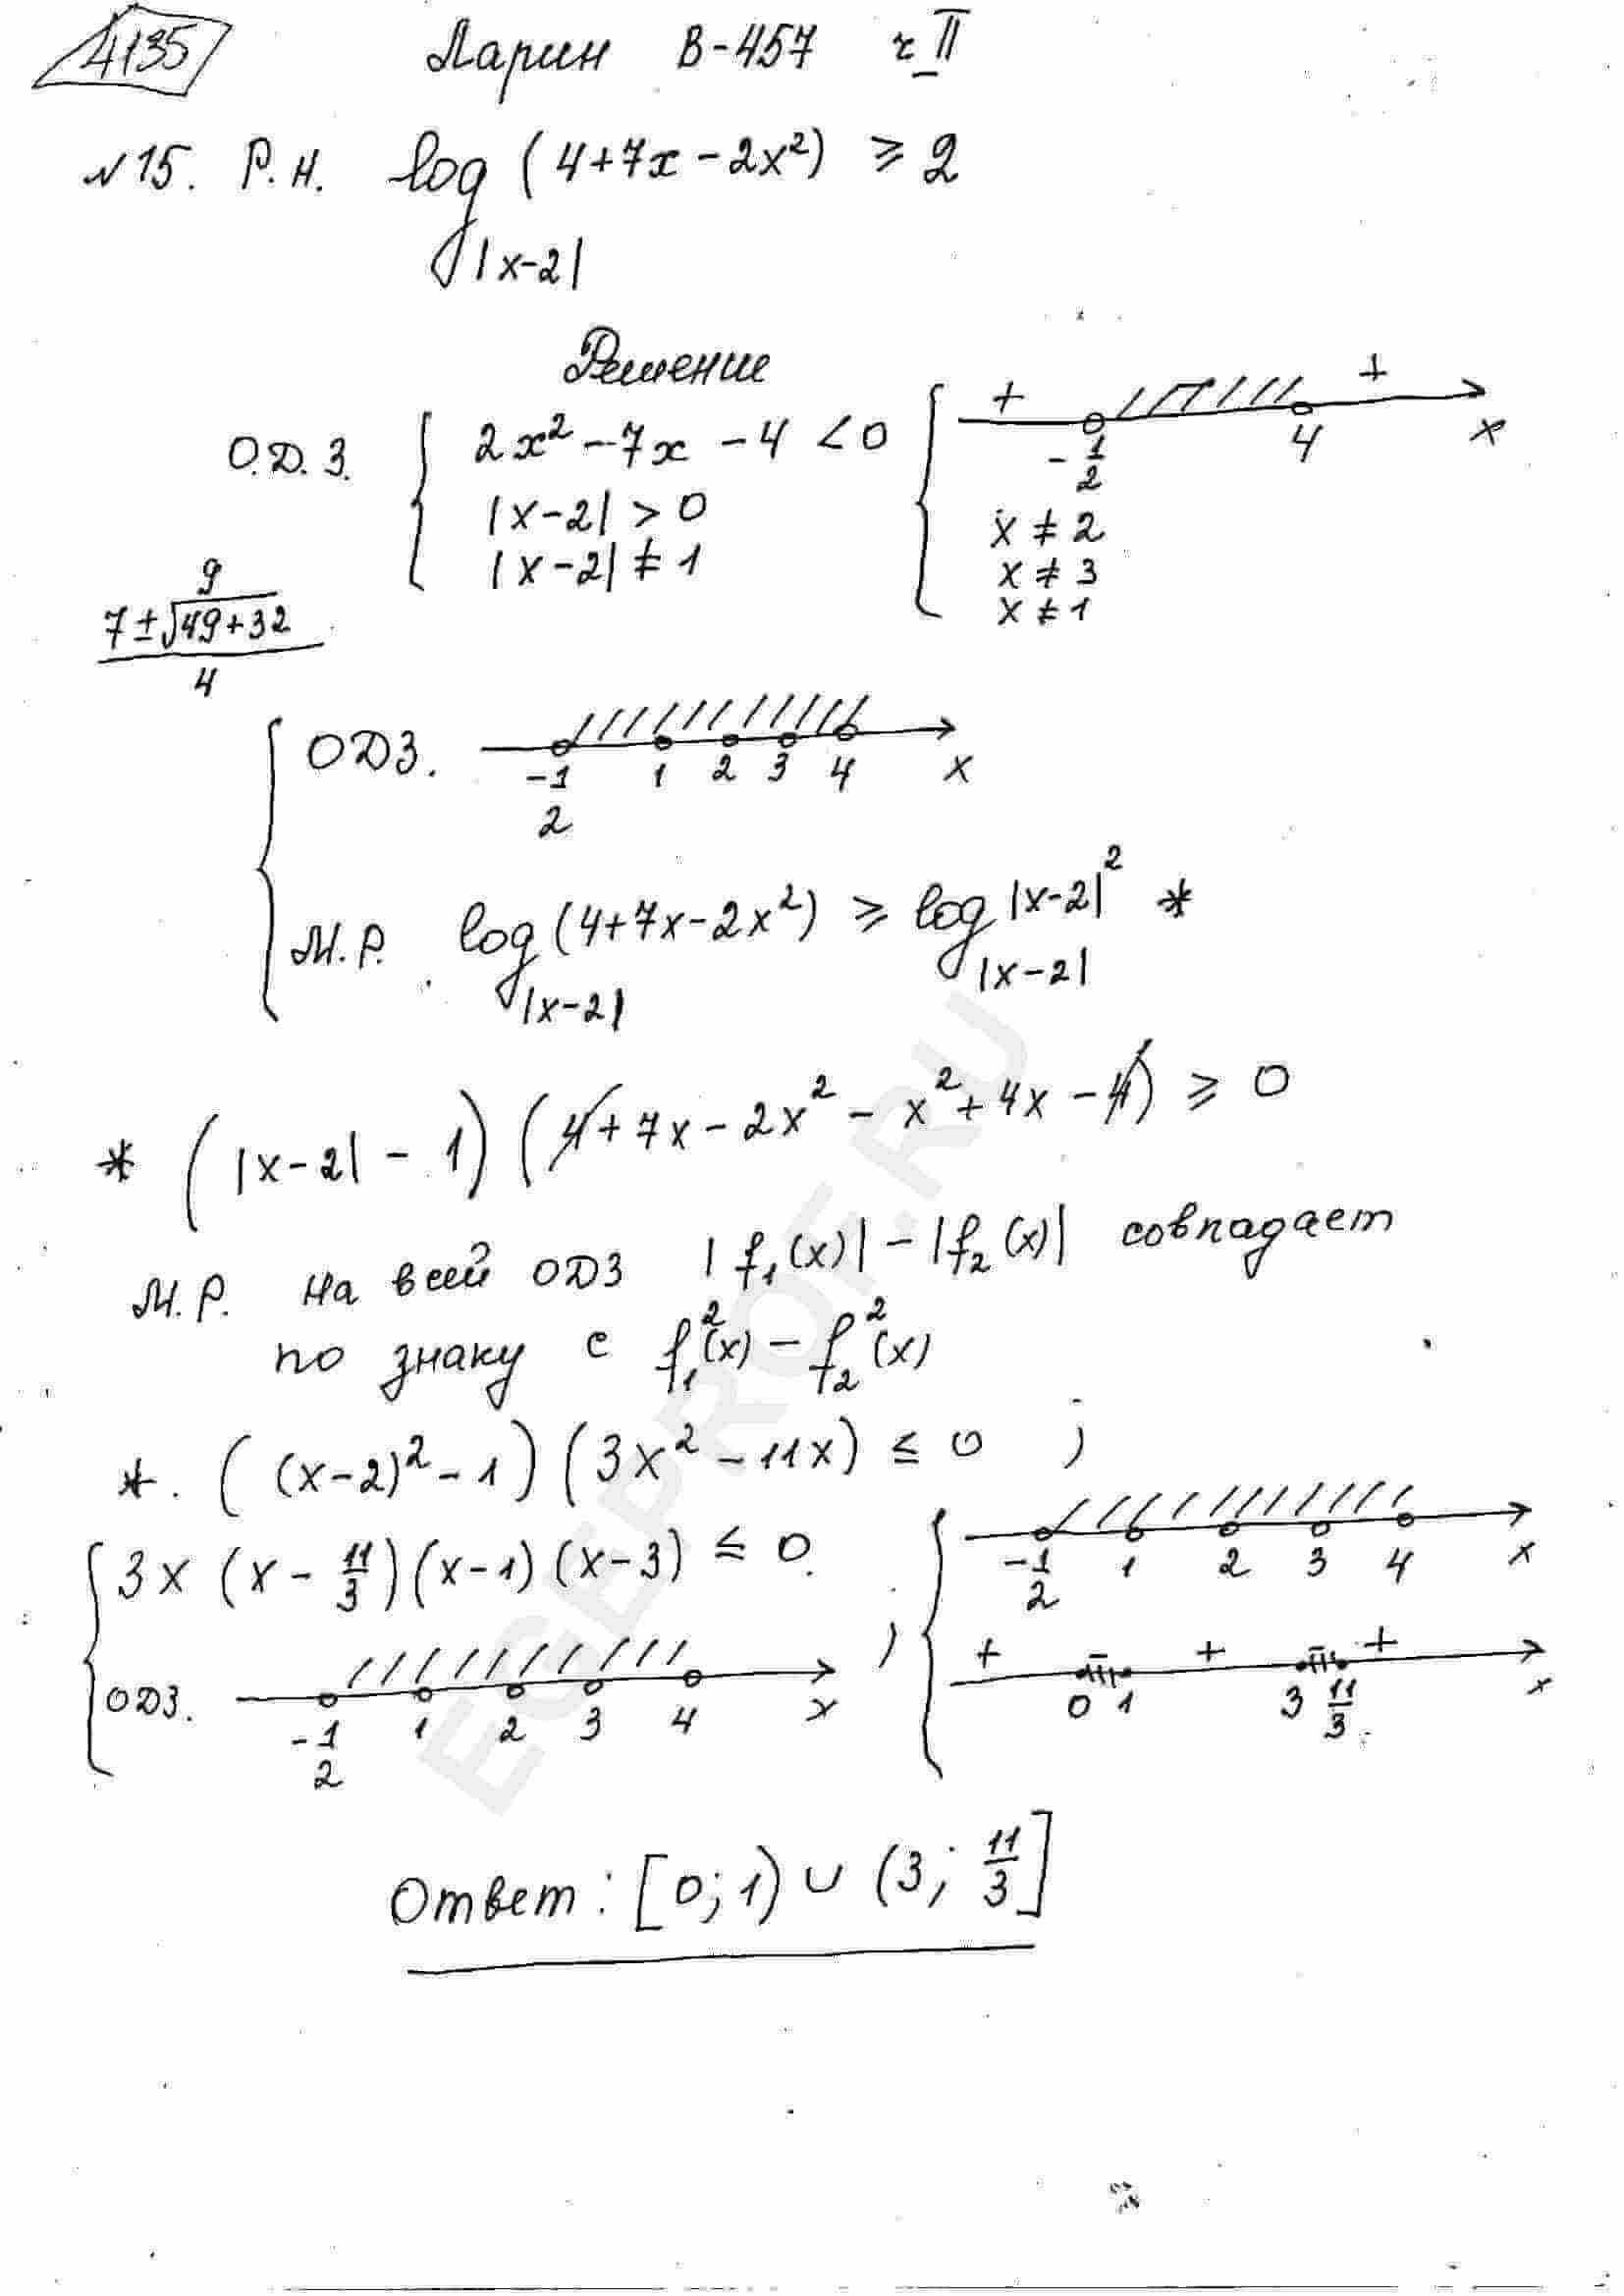 4135 Ларин В-457 ч II
№15. Р.Н. log_|x-2| (4+7x-2x²) ≥ 2
Решение
О.Д.З. { 2x²-7x-4<0 { + -1/2 4 + x
|x-2|>0 x≠2
|x-2|≠1 x≠3
x≠1
9
(7±√49+32)/4
{ ОДЗ. -1/2 1 2 3 4 x
М.Р. log_|x-2| (4+7x-2x²) ≥ log_|x-2| |x-2|² *
* (|x-2| - 1)(4+7x-2x²-x²+4x-4) ≥ 0
М.Р. на всей ОДЗ |f₁(x)|-|f₂(x)| совпадает
по знаку с f₁²(x) - f₂²(x)
*. ((x-2)²-1)(3x²-11x) ≤ 0 ;
{ 3x(x-11/3)(x-1)(x-3) ≤ 0. { -1/2 1 2 3 4 x
ОДЗ. -1/2 1 2 3 4 x ; + 0 - 1 + 3 - 11/3 + x
Ответ: [0;1) ∪ (3; 11/3]
EGEPROF.RU